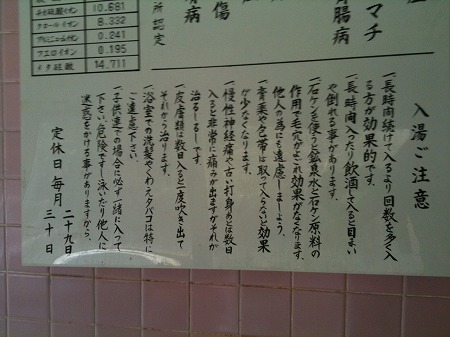 マチ
胃腸病
傷
病
所認定
10.681
クロールイオン 8.332
アルミニュームイオン 0.241
フエロイオン 0.195
メタ硅酸 14.711
入湯ご注意
一長時間続けて入るより回数を多く入
る方が効果的です。
一長時間入ったり飲酒して入ると目まい
や倒れる事があります。
一石ケンを使うと鉱泉水と石ケン原料の
作用で毛穴がよごれ効果がなくなります、
他人の為にも遠慮しましょう。
一膏薬や包帯は取って入らないと効果
が少なくなります。
一慢性神経痛や古い打身あとは数日
入ると非常に痛みが出ますがそれが
治るしるしです。
一皮膚類は数日入ると一度吹き出て
それから治ります。
一浴室での洗髪やくわえタバコは特に
ご遠慮下さい。
一子供連の場合は必ず一緒に入って
下さい、危険ですし泳いだり他人に
迷惑をかける事がありますから、
定休日 毎月 二十九日
三十日